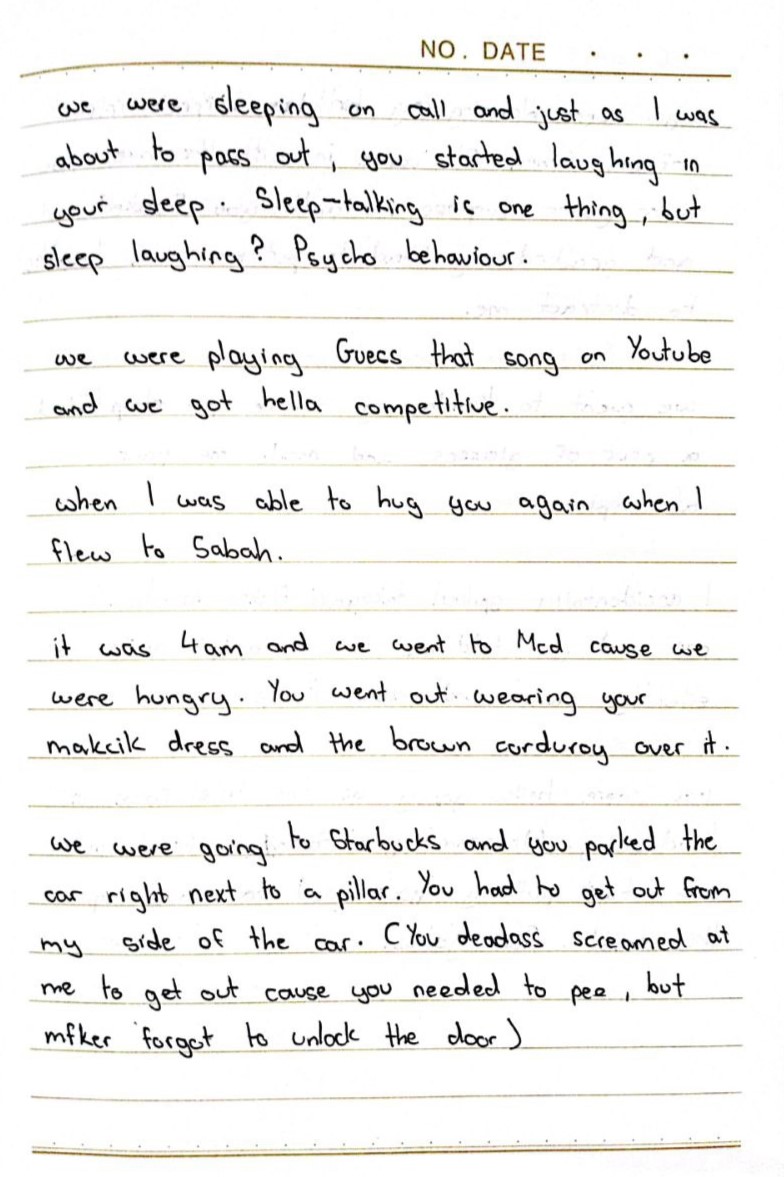 NO. DATE . . .
we were sleeping on call and just as I was
about to pass out, you started laughing in
your sleep. Sleep-talking is one thing, but
sleep laughing? Psycho behaviour.
we were playing Guess that song on Youtube
and we got hella competitive.
when I was able to hug you again when I
flew to Sabah.
it was 4am and we went to Mcd cause we
were hungry. You went out wearing your
makcik dress and the brown corduroy over it.
we were going to Starbucks and you parked the
car right next to a pillar. You had to get out from
my side of the car. (You deadass screamed at
me to get out cause you needed to pee, but
mfker forgot to unlock the door)